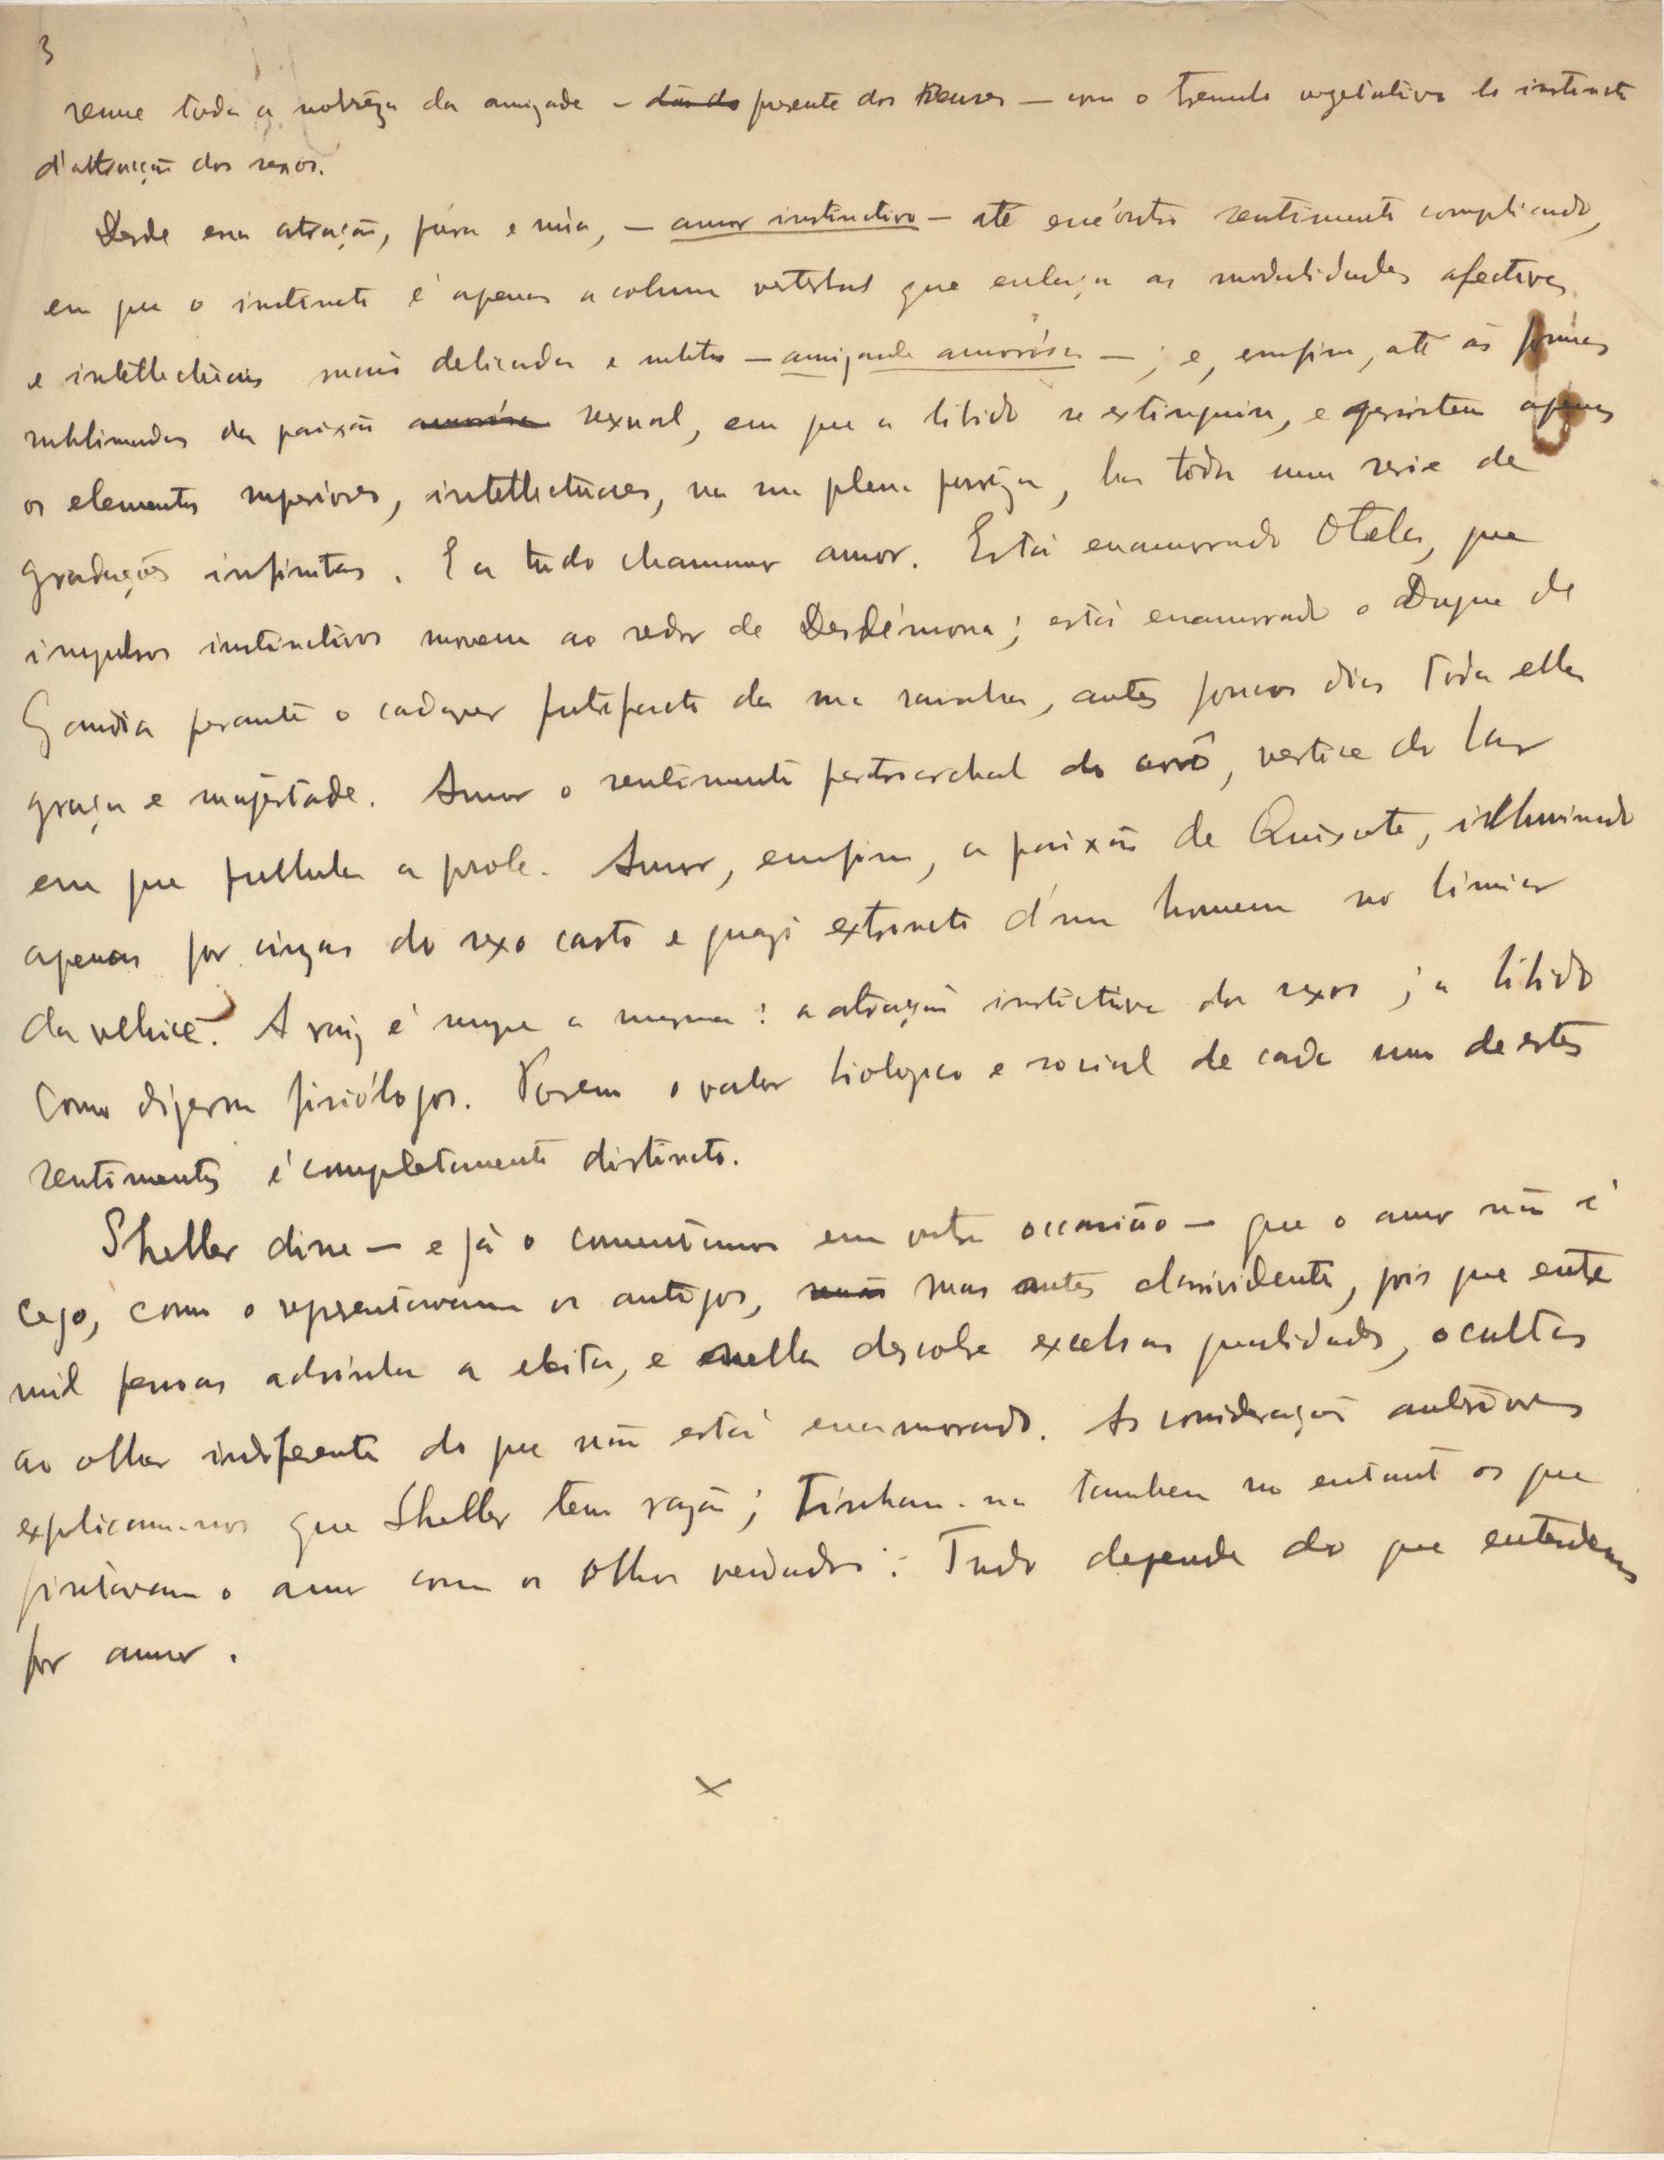 3
reune toda a nobrêza da amizade – presente dos Deuses – com o tremulo vegetativo do instincto
d'attracção dos sexos.
Desde essa atração, pura e núa, – amor instinctivo – até esse outro sentimento complicado,
em que o instincto é apenas a coluna vertebral que enlaça as modalidades afectivas
e intellectuais mais delicadas e subtis – amizade amorósa – ; e, emfim, até ás fórmas
sublimadas da paixão amorósa sexual, em que a libido se extinguiu, e persistem apenas
os elementos superiores, intellectuaes, na sua plena purêza, ha toda uma serie de
gradações infinitas. E a tudo chamamos amor. Está enamorado Otelo, que
impulsos instinctivos movem ao redor de Desdémona; está enamorado o Duque de
Gandia perante o cadaver putrefacto da sua rainha, antes poucos dias toda ella
graça e majestade. Amor o sentimento patriarchal do avô, vertice do lar
em que pullula a prole. Amor, emfim, a paixão de Quixote, illuminado
apenas por cinzas do sexo casto e quazi extincto d'um homem no limiar
da velhice. A raiz é sempre a mesma: a atração instictiva dos sexos; a libido
como dizem fisiólogos. Porem o valor biologico e social de cada um de estes
sentimentos é completamente distincto.
Sheller disse – e já o comentamos em outra occasião – que o amor não é
cego, como o representavam os antigos, mas antes clarividente, pois que entre
mil pessoas adivinha a eleita, e nella descobre excelsas qualidades, ocultas
ao olhar indiferente do que não está enamorado. As considerações anteriores
explicam-nos que Sheller tem razão; tinham-na tambem no entanto os que
pintavam o amor com os olhos vendados: Tudo depende do que entendemos
por amor.
x